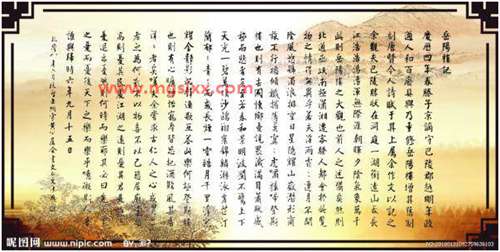 岳陽樓記
慶曆四年春滕子京謫守巴陵郡越明年政
通人和百廢具興乃重修岳陽樓增其舊
制刻唐賢今人詩賦于其上屬余作文以記之
予觀夫巴陵勝狀在洞庭一湖銜遠山吞長
江浩浩湯湯橫無際涯朝暉夕陰氣象萬千
此則岳陽樓之大觀也前人之述備矣然則
北通巫峽南極瀟湘遷客騷人多會於此覽
物之情得無異乎若夫霪雨霏霏連月不開
陰風怒號濁浪排空日星隱耀山岳潛形商
旅不行檣傾楫摧薄暮冥冥虎嘯猿啼登斯
樓也則有去國懷鄉憂讒畏譏滿目蕭然感
極而悲者矣至若春和景明波瀾不驚上下
天光一碧萬頃沙鷗翔集錦鱗游泳岸芷汀
蘭郁郁青青而或長煙一空皓月千里浮光
耀金靜影沉璧漁歌互答此樂何極登斯樓
也則有心曠神怡寵辱皆忘把酒臨風其喜洋
洋者矣嗟夫予嘗求古仁人之心或異二
者之為何哉不以物喜不以己悲居廟堂之
高則憂其民處江湖之遠則憂其君是進
亦憂退亦憂然則何時而樂耶其必曰先天下
之憂而憂後天下之樂而樂乎噫微斯人吾
誰與歸時六年九月十五日
www.mgsxx.com
昵图网
www.nipic.com